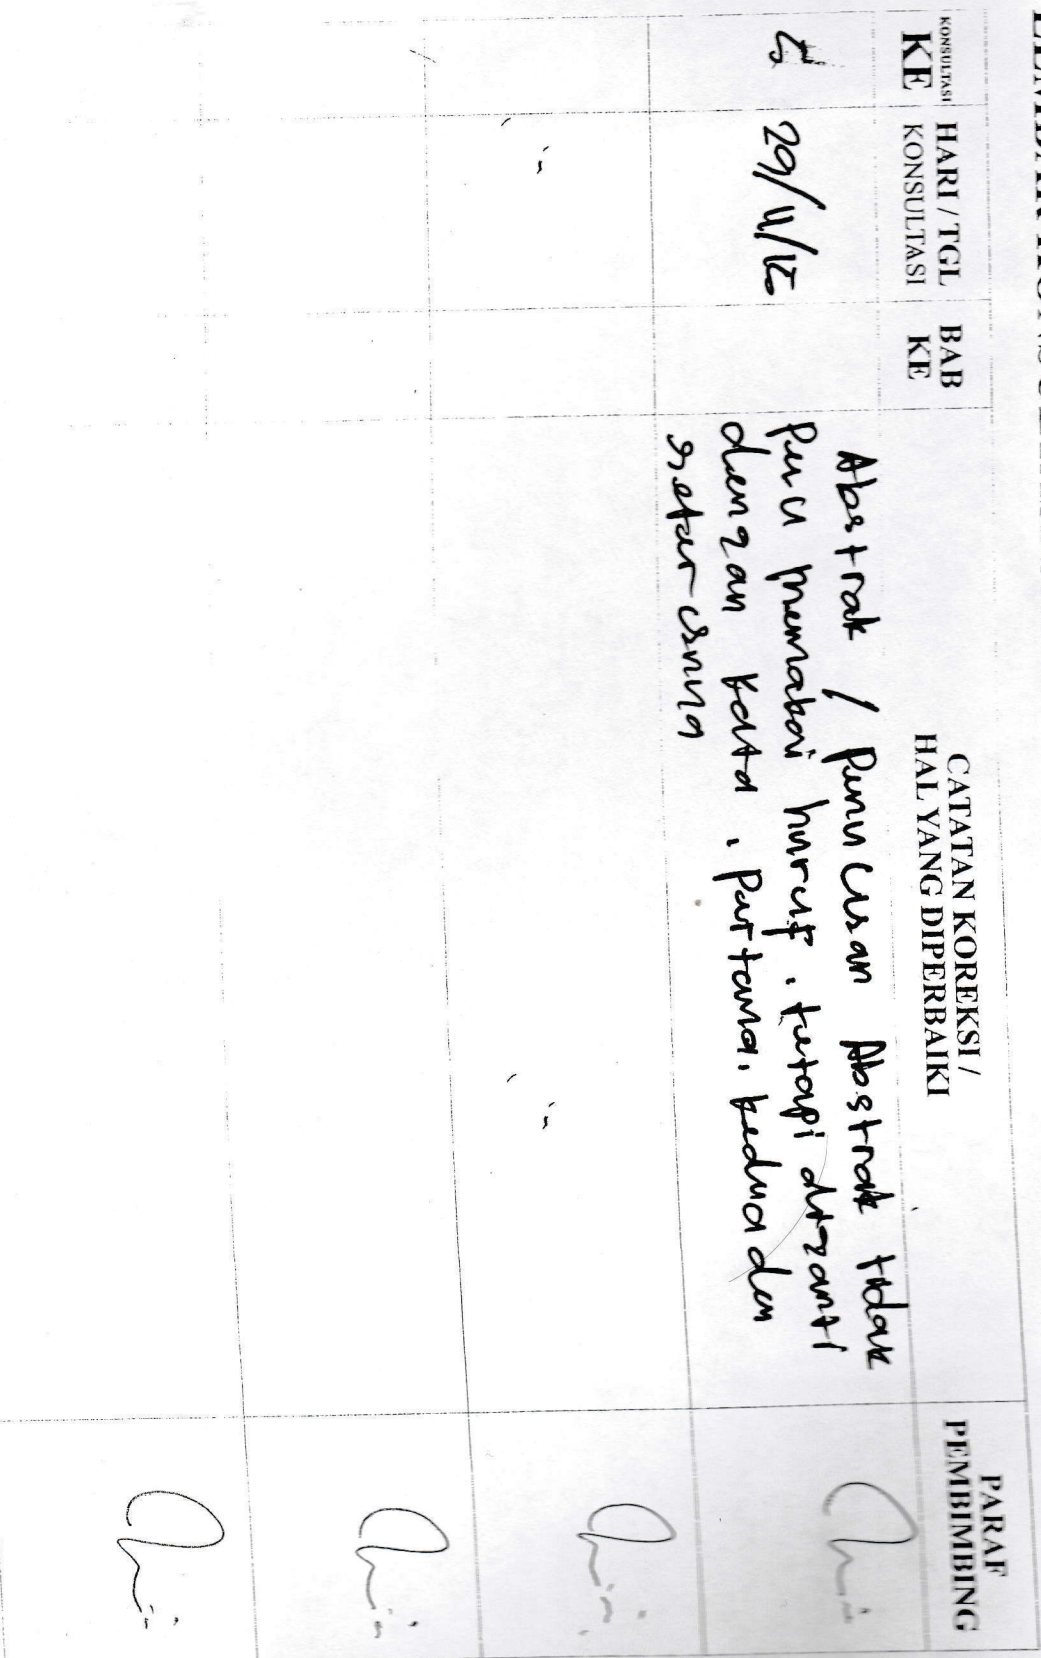 KONSULTASI KE
HARI / TGL KONSULTASI
BAB KE
CATATAN KOREKSI /
HAL YANG DIPERBAIKI
PARAF PEMBIMBING
29/11/
Abstrak / Penulisan Abstrak tidak
Perlu memakai huruf, tetapi diganti
dengan kata, pertama, kedua dan
seterusnya